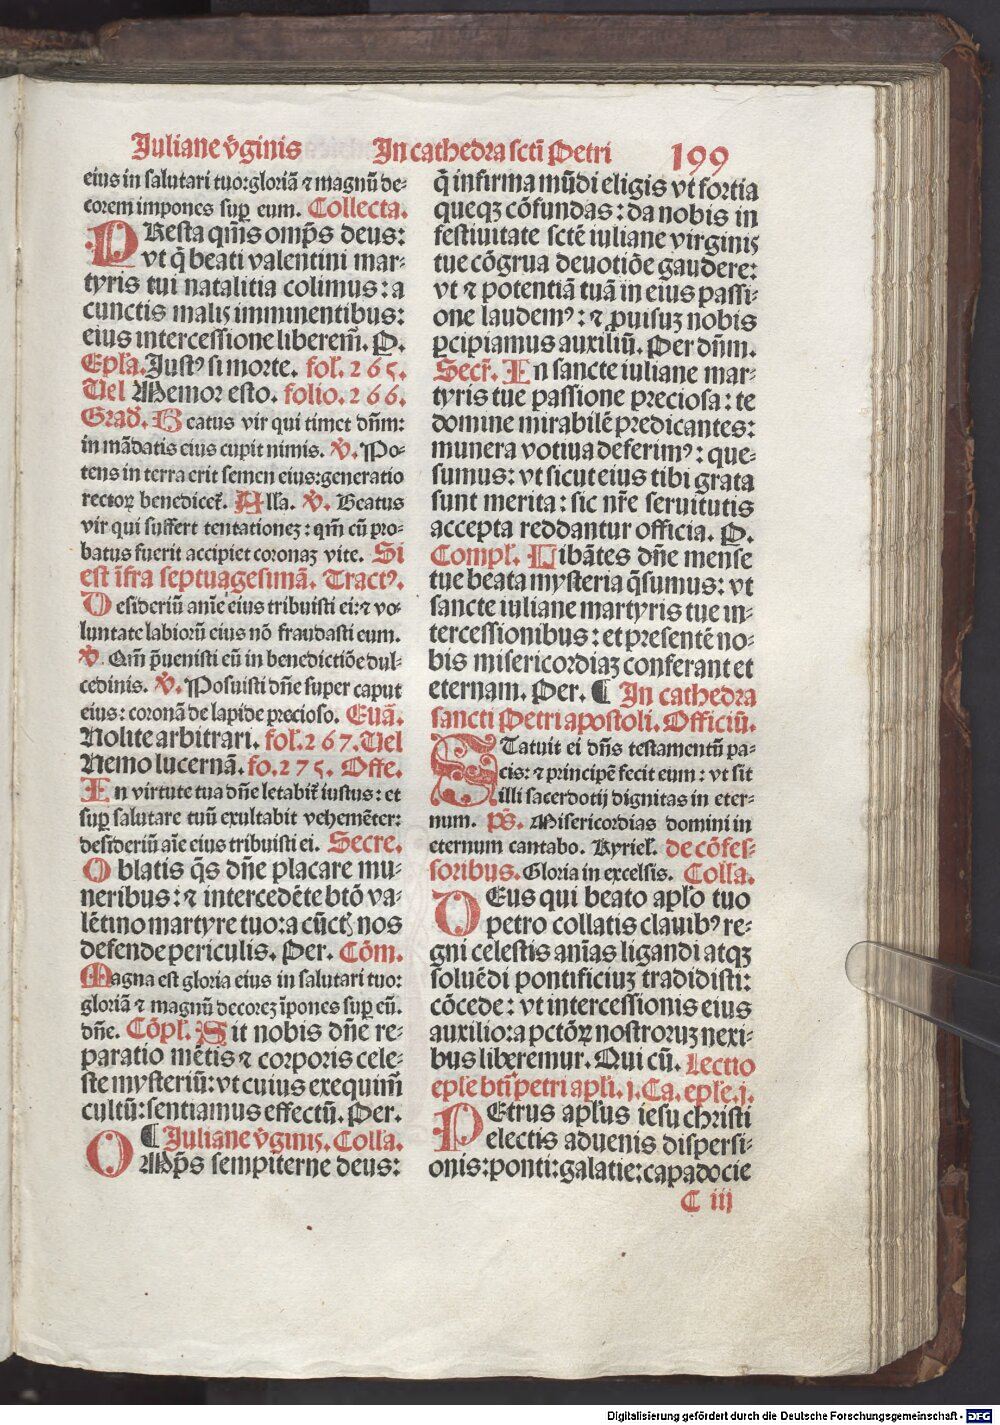 Iuliane v̄ginis In cathedra sctī Petri 199
eius in salutari tuo:gloriā ⁊ magnū de⸗
corem impones sup̱ eum. Collecta.
PResta qm̄s omp̄s deus:
vt q̄ beati valentini mar⸗
tyris tui natalitia colimus: a
cunctis malis imminentibus:
eius intercessione liberem̄. P.
Epl̄a. Justꝰ si morte. fol. 265.
Uel Memor esto. folio. 266.
Grad̄. Beatus vir qui timet dn̄m:
in mādatis eius cupit nimis. ℣. Po⸗
tens in terra erit semen eius:generatio
rectoꝝ benedicet̄. Alla. ℣. Beatus
vir qui suffert tentationeꝫ: qm̄ cū pro⸗
batus fuerit accipiet coronaꝫ vite. Si
est īfra septuagesimā. Tractꝰ.
Desideriū anīe eius tribuisti ei:⁊ vo⸗
luntate labiorū eius nō fraudasti eum.
℣. Qm̄ p̄uenisti eū in benedictiōe dul⸗
cedinis. ℣. Posuisti dn̄e super caput
eius: coronā de lapide precioso. Euā.
Nolite arbitrari. fol. 267. Uel
Nemo lucernā. fo. 275. Offe.
In virtute tua dn̄e letabit̄ iustus: et
sup̱ salutare tuū exultabit vehemēter:
desideriū aīe eius tribuisti ei. Secre.
Oblatis q̄s dn̄e placare mu⸗
neribus: ⁊ intercedēte btō va⸗
lētino martyre tuo: a cūctꝭ nos
defende periculis. Per. Cōm.
Magna est gloria eius in salutari tuo:
gloriā ⁊ magnū decoreꝫ īpones sup̱ eū.
dn̄e. Cōpl̄. Sit nobis dn̄e re⸗
paratio mētis ⁊ corporis cele⸗
ste mysteriū: vt cuius exequim̄
cultū: sentiamus effectū. Per.
¶ Juliane v̄ginis. Colla.
OMp̄s sempiterne deus:
q̄ infirma mūdi eligis vt fortia
queqꝫ cōfundas: da nobis in
festiuitate sctē iuliane virginis
tue cōgrua deuotiōe gaudere:
vt ⁊ potentiā tuā in eius passi⸗
one laudemꝰ: ⁊ ꝓuisuꝫ nobis
ꝑcipiamus auxiliū. Per dn̄m.
Secr̄. In sancte iuliane mar⸗
tyris tue passione preciosa: te
domine mirabilē predicantes:
munera votiua deferimꝰ: que⸗
sumus: vt sicut eius tibi grata
sunt merita: sic nr̄e seruitutis
accepta reddantur officia. P.
Compl̄. Libātes dn̄e mense
tue beata mysteria q̄sumus: vt
sancte iuliane martyris tue in⸗
tercessionibus: et presentē no⸗
bis misericordiaꝫ conferant et
eternam. Per. ¶ In cathedra
sancti Petri apostoli. Officiū.
STatuit ei dn̄s testamentū pa⸗
cis: ⁊ principē fecit eum: vt sit
illi sacerdotij dignitas in eter⸗
num. ps̄. Misericordias domini in
eternum cantabo. Kyriel̄. de cōfes⸗
soribus. Gloria in excelsis. Colla.
DEus qui beato apl̄o tuo
petro collatis clauibꝰ re⸗
gni celestis anīas ligandi atqꝫ
soluēdi pontificiuꝫ tradidisti:
cōcede: vt intercessionis eius
auxilio: a pctōꝝ nostroruꝫ nexi⸗
bus liberemur. Qui cū. Lectio
epl̄e btī petri apl̄i. j. Ca. epl̄e. j.
PEtrus apl̄us iesu christi
electis aduenis dispersi⸗
onis: ponti: galatie: capadocie
C iij
Digitalisierung gefördert durch die Deutsche Forschungsgemeinschaft - DFG